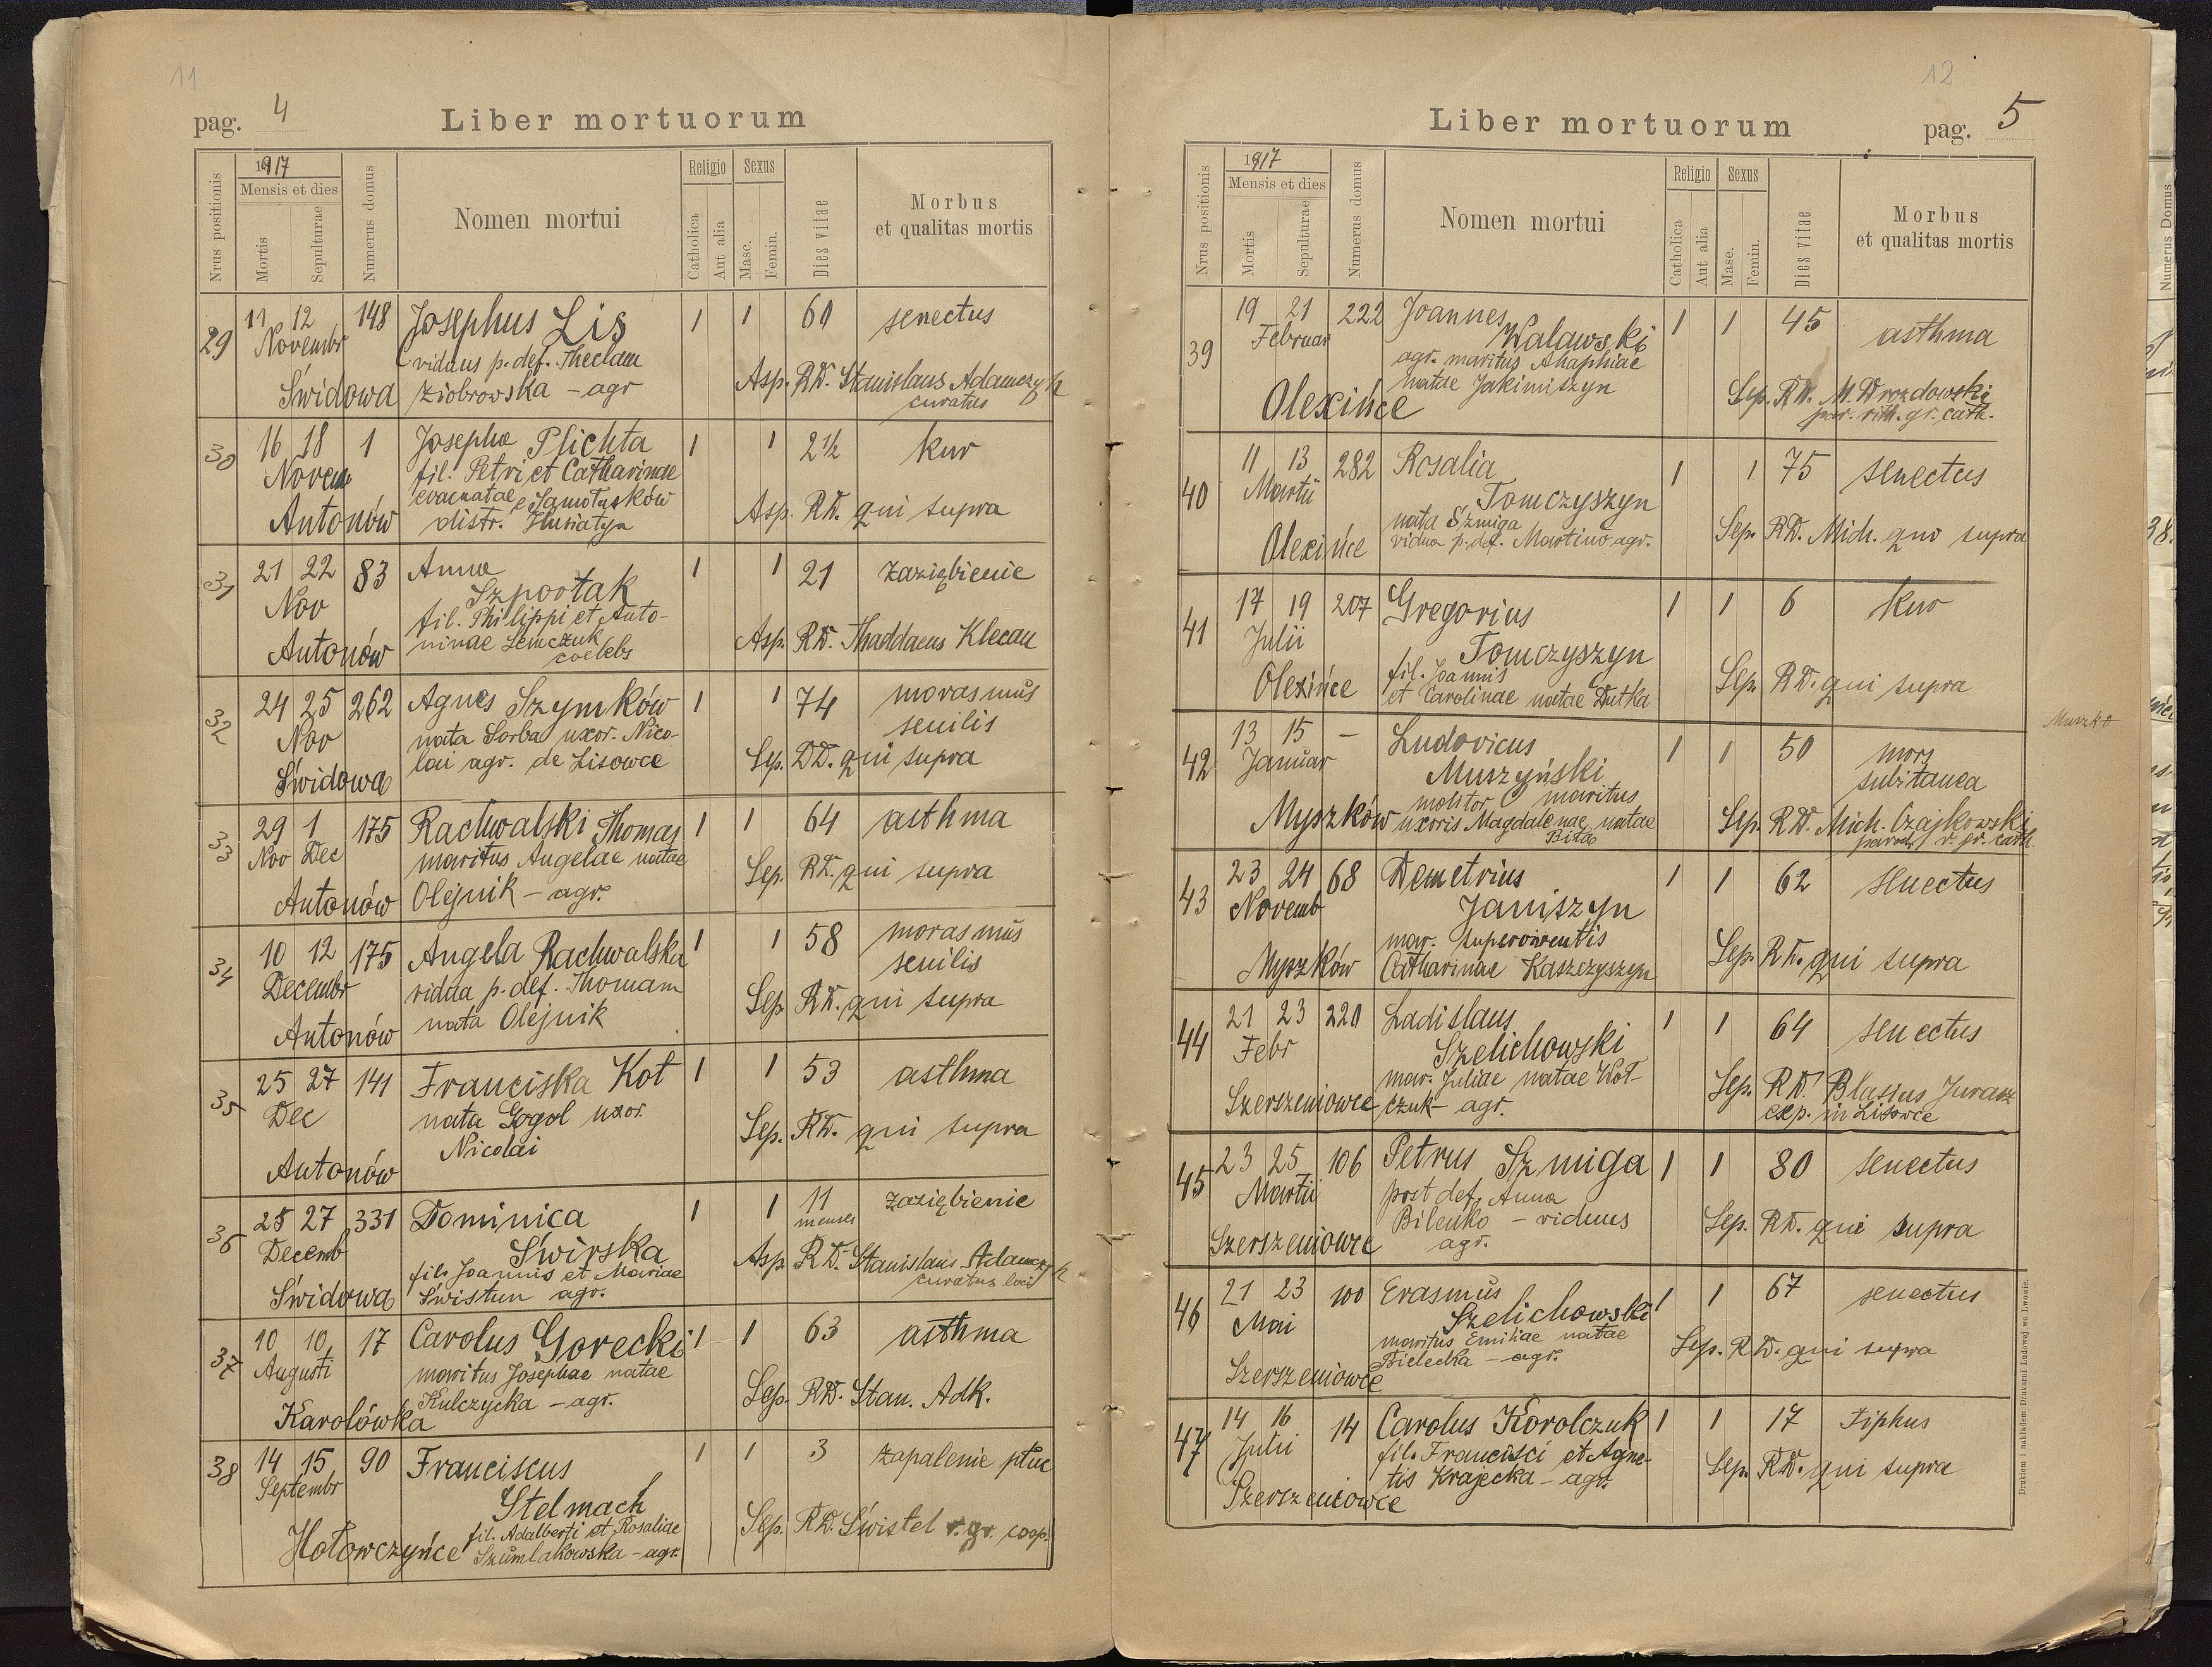 11
pag. 4
Liber mortuorum
Nrus positionis
1917
Mensis et dies
Mortis
Sepulturae
Numerus domus
Nomen mortui
Religio
Catholica
Aut alia
Sexus
Masc.
Femin.
Dies vitae
Morbus
et qualitas mortis
29 11 12 148 Josephus Lis 1 1 60 senectus
Novembr viduus p. def. Theclam
Świdowa Ziobrowska - agr Asp. RD. Stanislaus Adamczyk
curatus
30 16 18 1 Josepha Plichta 1 1 2½ kur
Novem fil. Petri et Catharinae
evacuatae e Samołusków
Antonów distr. Husiatyn Asp. RD. qui supra
31 21 22 83 Anna 1 1 21 zaziębienie
Nov Szportak
fil. Philippi et Anto-
Antonów ninae Semczuk Asp. RD. Thaddaeus Klecan
coelebs
32 24 25 262 Agnes Szymków 1 1 74 marasmus
Nov nata Sorba uxor. Nico- senilis
Świdowa lai agr. de Lisowce Sep. DD. qui supra
33 29 1 175 Rachwalski Thomas 1 1 64 asthma
Nov Dec maritus Angelae natae
Antonów Olejnik - agr. Sep. RD. qui supra
34 10 12 175 Angela Rachwalska 1 1 58 marasmus
Decembr vidua p. def. Thomam senilis
Antonów nata Olejnik Sep. RD. qui supra
35 25 27 141 Franciska Kot 1 1 53 asthma
Dec nata Gogol uxor.
Antonów Nicolai Sep. RD. qui supra
36 25 27 331 Dominica 1 1 11 menses zaziębienie
Decemb Świrska
fil. Joannis et Mariae Asp. RD. Stanislaus Adamczyk
Świdowa Świstun agr. curatus loci
37 10 10 17 Carolus Gorecki 1 1 63 asthma
Augusti maritus Josephae natae
Karolówka Kulczycka - agr. Sep. RD. Stan. Adk.
38 14 15 90 Franciscus 1 1 3 zapalenie płuc
Septembr Stelmach
fil. Adalberti et Rosaliae Sep. RD. Świstel r. gr. coop.
Hołowczyńce Szumlakowska - agr.
12
Liber mortuorum
pag. 5
Nrus positionis
1917
Mensis et dies
Mortis
Sepulturae
Numerus domus
Nomen mortui
Religio
Catholica
Aut alia
Sexus
Masc.
Femin.
Dies vitae
Morbus
et qualitas mortis
39 19 21 222 Joannes 1 1 45 asthma
Februar Walawski
agr. maritus Ahaphiae
Olexińce natae Jakimiszyn Sep. RD. M. Drozdowski
par. rith. gr. cath.
40 11 13 282 Rosalia 1 1 75 senectus
Martii Tomczyszyn
nata Szmiga
Olexińce vidua p. def. Martino agr. Sep. RD. Mich. qui supra
41 17 19 207 Gregorius 1 1 6 kur
Julii Tomczyszyn
fil. Joannis
Olexińce et Carolinae natae Dutka Sep. RD. qui supra
42 13 15 - Ludovicus 1 1 50 mors
Januar Muszyński subitanea
molitor maritus
Myszków uxoris Magdalenae natae Bita Sep. RD. Mich. Czajkowski
paroch r. gr. cath.
Muszko
43 23 24 68 Demetrius 1 1 62 senectus
Novemb Janiszyn
mar. superviventis
Myszków Catharinae Kaszczyszyn Sep. RD. qui supra
44 21 23 220 Ladislaus 1 1 64 senectus
Febr Szelichowski
mar. Juliae natae Koł-
Szerszeniowce czuk - agr. Sep. RD. Blasius Jurasz
exp. in Lisowce
45 23 25 106 Petrus Szmiga 1 1 80 senectus
Martii post def. Anna
Bilenko - viduus
Szerszeniowce agr. Sep. RD. qui supra
46 21 23 100 Erasmus 1 1 67 senectus
Mai Szelichowski
maritus Emiliae natae
Szerszeniowce Bielecka - agr. Sep. RD. qui supra
47 14 16 14 Carolus Korolczuk 1 1 17 tiphus
Julii fil. Francisci et Agne-
Szerszeniowce tis Krajecka - agr. Sep. RD. qui supra
Drukiem i nakładem Drukarni Ludowej we Lwowie.
Numerus Domus
38.